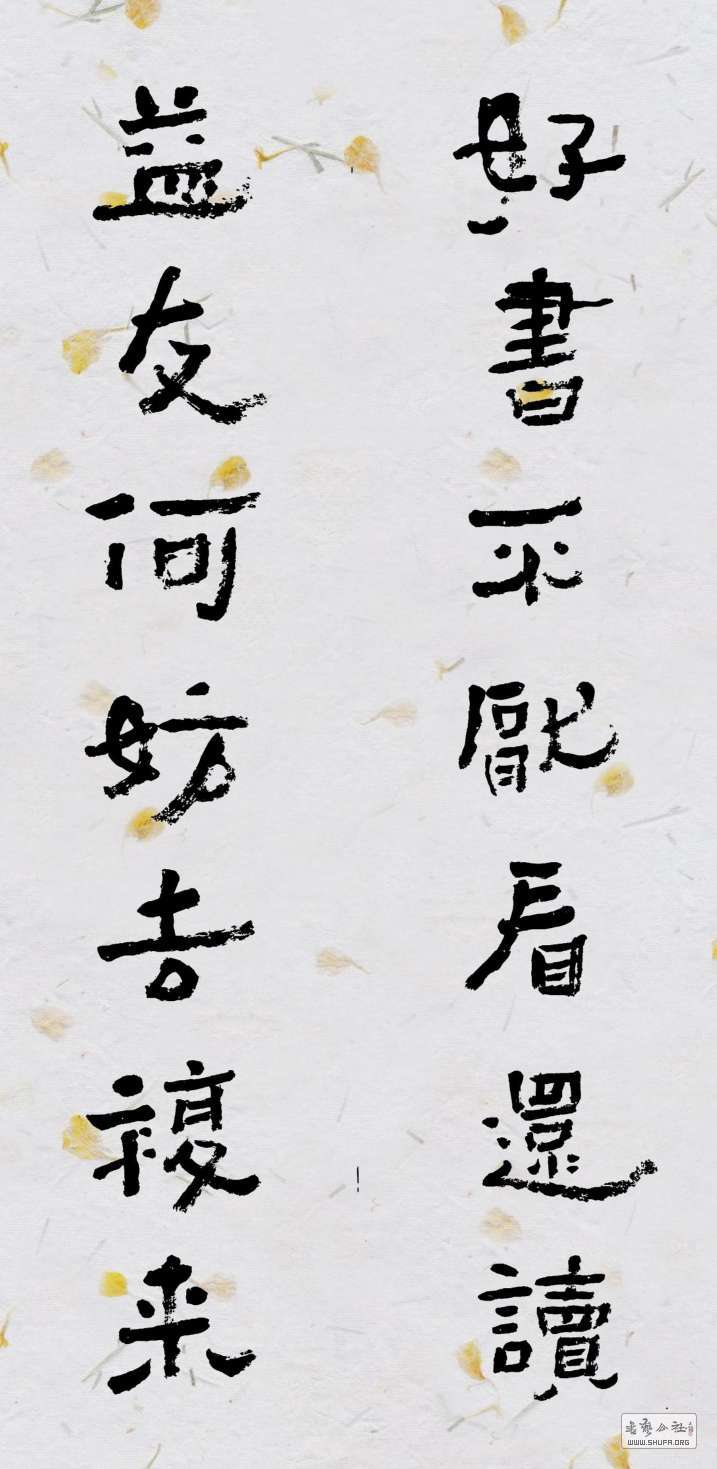 好書不厭看還讀
益友何妨去複来
書藝公社
WWW.SHUFA.ORG